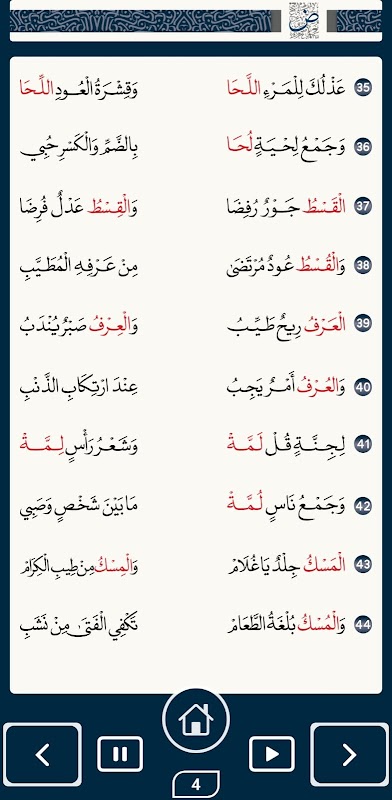 ض
35 عَذْلُكَ لِلْمَرْءِ اللَّحَا وَقِشْرَةُ الْعُودِ اللِّحَا
36 وَجَمْعُ لِحْيَةٍ لُحَا بِالضَّمِّ وَالْكَسْرِ حُبِي
37 الْقَسْطُ جَوْرٌ رُفِضَا وَالْقِسْطُ عَدْلٌ فُرِضَا
38 وَالْقُسْطُ عُودٌ مُرْتَضَى مِنْ عَرْفِهِ الْمُطَيَّبِ
39 الْعَرْفُ رِيحٌ طَيِّبُ وَالْعِرْفُ صَبْرٌ يُنْدَبُ
40 وَالْعُرْفُ أَمْرٌ يَجِبُ عِنْدَ ارْتِكَابِ الذَّنْبِ
41 لِجِنَّةٍ قُلْ لَمَّةْ وَشَعْرُ رَأْسٍ لِمَّةْ
42 وَجَمْعُ نَاسٍ لُمَّةْ مَا بَيْنَ شَخْصٍ وَصَبِي
43 الْمَسْكُ جِلْدٌ يَا غُلَامْ وَالْمِسْكُ مِنْ طِيبِ الْكِرَامْ
44 وَالْمُسْكُ بُلْغَةُ الطَّعَامْ تَكْفِي الْفَتَى مِنْ نَشَبِ
4